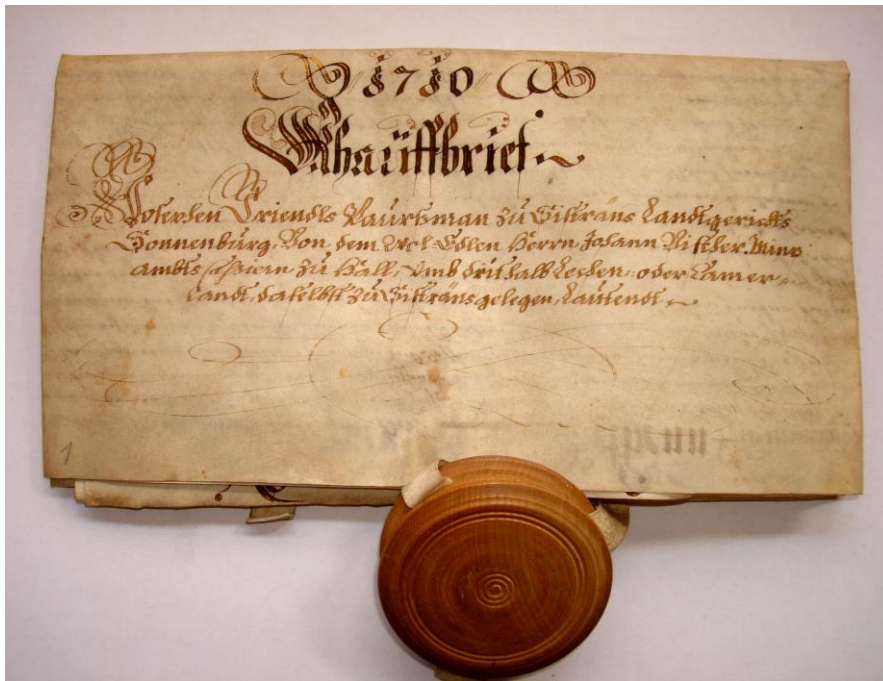 1710
Khauffbrief.
Josephen Triendls Paursman zu Sistrans Landtgerichts
Sonnenburg, Von dem Wol Edlen Herrn Johann
ambts zu Hall, umb drithalb oder
Landt, daselbst zu Sistrans gelegen, Lautendt
1